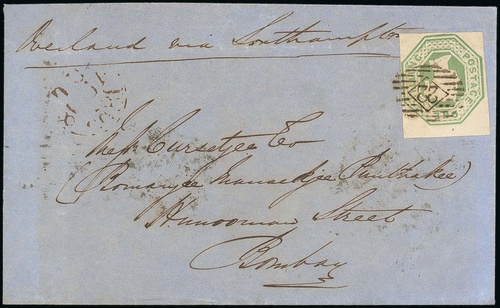 Overland via Southampton
POSTAGE
23
Mess Cursetjee & Co
(Bomanjee Manackjee Punthakee)
Hunooman Street
Bombay